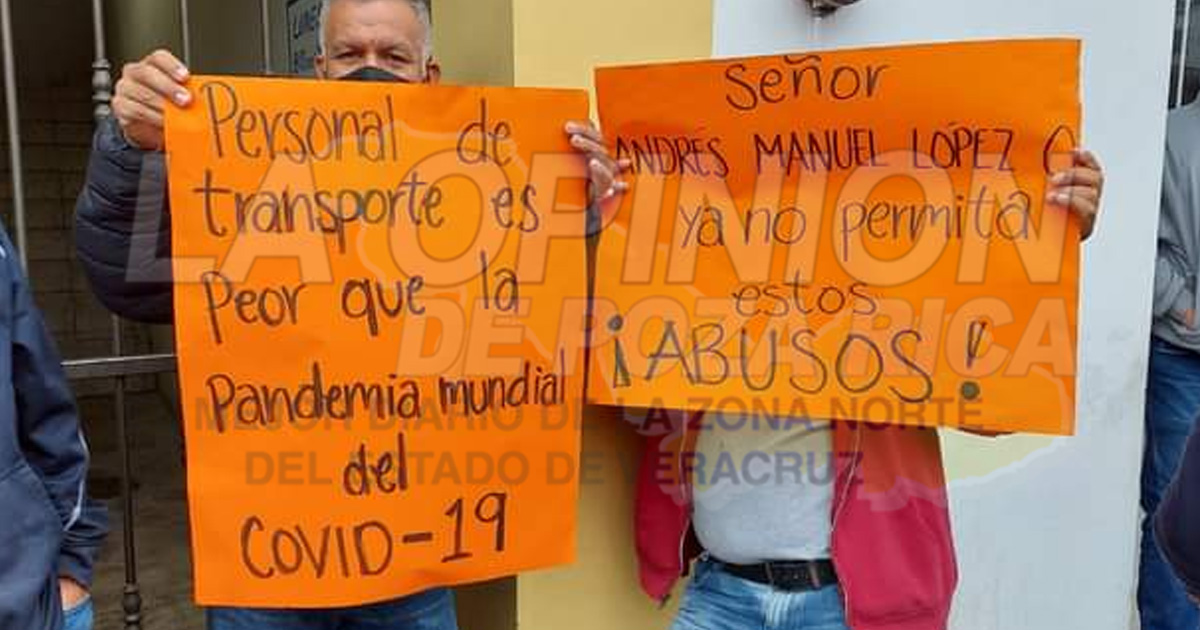 Personal de
transporte es
Peor que la
Pandemia mundial
del
COVID-19
Señor
ANDRÉS MANUEL LÓPEZ O
ya no permita
estos
¡ABUSOS!
LA OPINIÓN
DE POZA RICA
MEJOR DIARIO DE LA ZONA NORTE
DEL ESTADO DE VERACRUZ